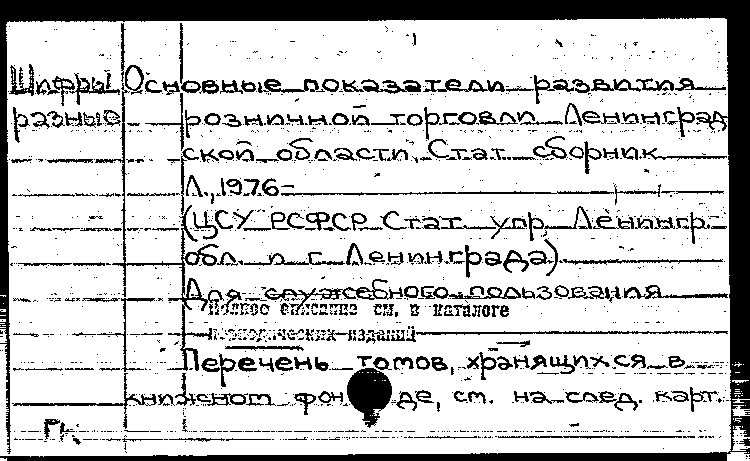 Шифры Основные показатели развития
разные розничной торговли Ленинград
ской области. Стат. сборник
Л., 1976-
(ЦСУ РСФСР Стат. упр. Ленингр.
обл. и г. Ленинграда)
Для служебного пользования
Полное описание см. в каталоге
периодических изданий
Перечень томов, хранящихся в
книжном фонде, см. на след. карт.
Гк.